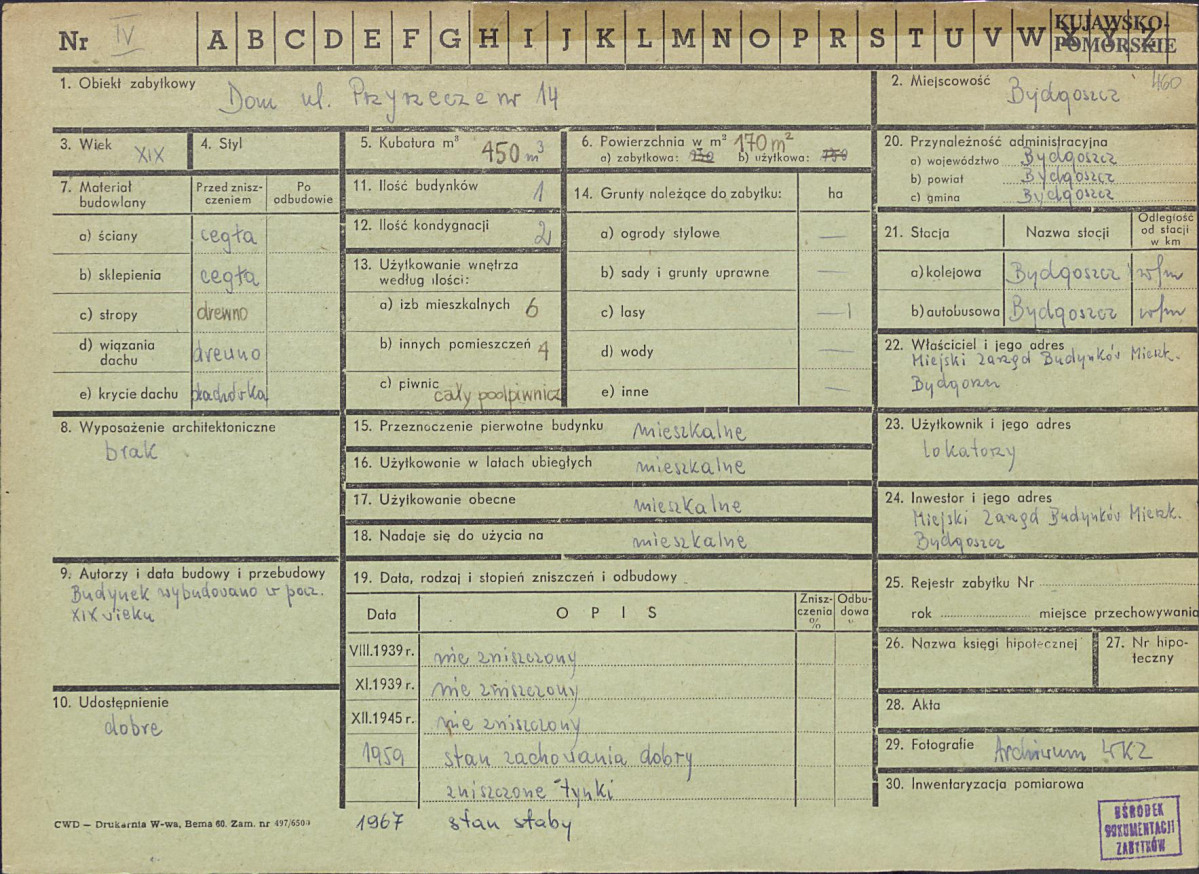 Nr IV A B C D E F G H I J K L M N O P R S T U V W X Y Z
KUJAWSKO-
POMORSKIE
460
1. Obiekt zabytkowy
Dom ul. Przyrzecze nr 14
2. Miejscowość
Bydgoszcz
3. Wiek XIX
4. Styl
5. Kubatura m³ 450 m³
6. Powierzchnia w m² 170 m²
a) zabytkowa: b) użytkowa:
20. Przynależność administracyjna
a) województwo Bydgoszcz
b) powiat Bydgoszcz
c) gmina Bydgoszcz
7. Materiał budowlany
Przed znisz-
czeniem
Po
odbudowie
a) ściany cegła
b) sklepienia cegła
c) stropy drewno
d) wiązania
dachu drewno
e) krycie dachu dachówka
11. Ilość budynków 1
12. Ilość kondygnacji 2
13. Użytkowanie wnętrza
według ilości:
a) izb mieszkalnych 6
b) innych pomieszczeń 4
c) piwnic
cały podpiwnicz
14. Grunty należące do zabytku: ha
a) ogrody stylowe —
b) sady i grunty uprawne —
c) lasy —
d) wody —
e) inne —
21. Stacja
Nazwa stacji
Odległość
od stacji
w km
a) kolejowa Bydgoszcz w/m
b) autobusowa Bydgoszcz w/m
22. Właściciel i jego adres
Miejski Zarząd Budynków Mieszk.
Bydgoszcz
8. Wyposażenie architektoniczne
brak
15. Przeznoczenie pierwotne budynku mieszkalne
16. Użytkowanie w latach ubiegłych mieszkalne
17. Użytkowanie obecne mieszkalne
18. Nadaje się do użycia na mieszkalne
23. Użytkownik i jego adres
lokatorzy
24. Inwestor i jego adres
Miejski Zarząd Budynków Mieszk.
Bydgoszcz
9. Autorzy i data budowy i przebudowy
Budynek wybudowano w pocz.
XIX wieku
10. Udostępnienie
dobre
19. Data, rodzaj i stopień zniszczeń i odbudowy
Data
OPIS
Znisz-
czenia
%
Odbu-
dowa
VIII.1939 r. nie zniszczony
XI.1939 r. nie zniszczony
XII.1945 r. nie zniszczony
1959 stan zachowania dobry
zniszczone tynki
1967 stan słaby
25. Rejestr zabytku Nr
rok miejsce przechowywania
26. Nazwa księgi hipotecznej
27. Nr hipo-
teczny
28. Akta
29. Fotografie Archiwum WKZ
30. Inwentaryzacja pomiarowa
CWD — Drukarnia W-wa, Bema 60. Zam. nr 497/650
OŚRODEK
DOKUMENTACJI
ZABYTKÓW